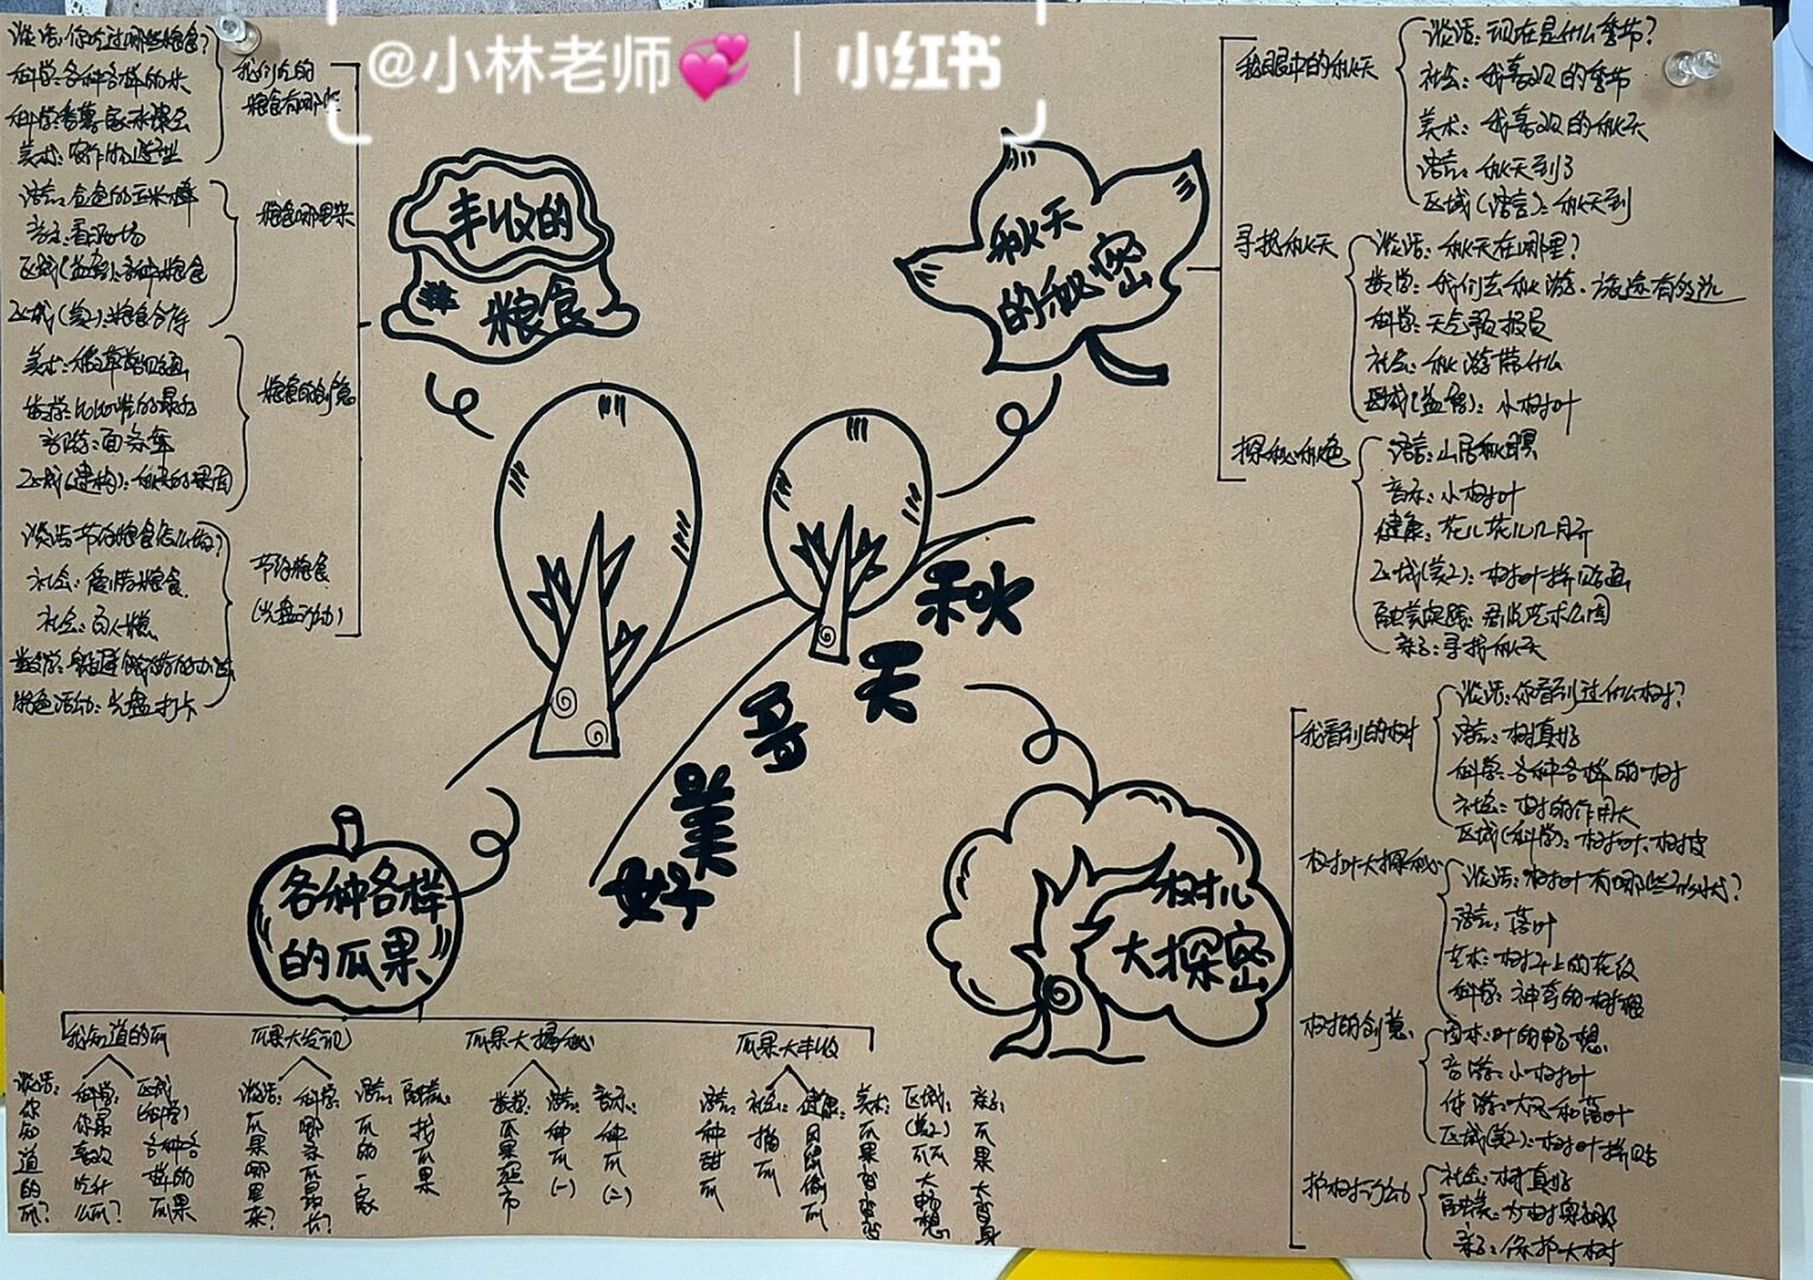 @小林老师 | 小红书
丰收的
粮食
秋天
的秘密
秋
天
哥
美
好
各种各样
的瓜果
树儿
大探密
谈话:你吃过哪些粮食?
科学:各种各样的米
我们吃的
粮食有哪些
语言:金色的玉米棒
区域(益智):各种粮食
粮食哪里来
区域(美工):粮食仓库
粮食的创意
音游:面条舞
区域(建构):秋天的果园
谈话:节约粮食怎么做?
社会:爱惜粮食
节约粮食
(光盘行动)
特色活动:光盘打卡
我眼中的秋天
谈话:现在是什么季节?
社会:我喜欢的季节
美术:我喜欢的秋天
语言:秋天到了
区域(语言):秋天到
寻找秋天
谈话:秋天在哪里?
数学:我们去秋游,旅途有多远
科学:天气预报员
社会:秋游带什么
区域(益智):小树叶
探秘秋色
语言:山居秋暝
音乐:小树叶
健康:花儿花儿几月开
区域(美工):树叶拼贴画
融美实践:君悦艺术公园
亲子:寻找秋天
我看到的树
谈话:你看到过什么树?
语言:树真好
科学:各种各样的树
社会:树的作用大
区域(科学):树叶、树皮
树叶大探秘
谈话:树叶有哪些形状?
语言:落叶
艺术:树叶上的花纹
科学:神奇的树根
树的创意
美术:叶的畅想
音游:小树叶
体游:大风和落叶
区域(美工):树叶拼贴
护树行动
社会:树真好
亲子:保护大树
我知道的瓜
谈话:你知道的瓜?
科学:你最喜欢吃什么瓜?
区域(科学)各种各样的瓜果
谈话:瓜果哪里来?
科学:哪条瓜最长?
语言:瓜的一家
融美:找瓜果
瓜果大揭秘
数学:瓜果超市
语言:种瓜(一)
音乐:种瓜(二)
瓜果大丰收
语言:种甜瓜
社会:摘瓜
美术:瓜果变变变
区域(美工)瓜瓜大畅想
亲子:瓜果大变身